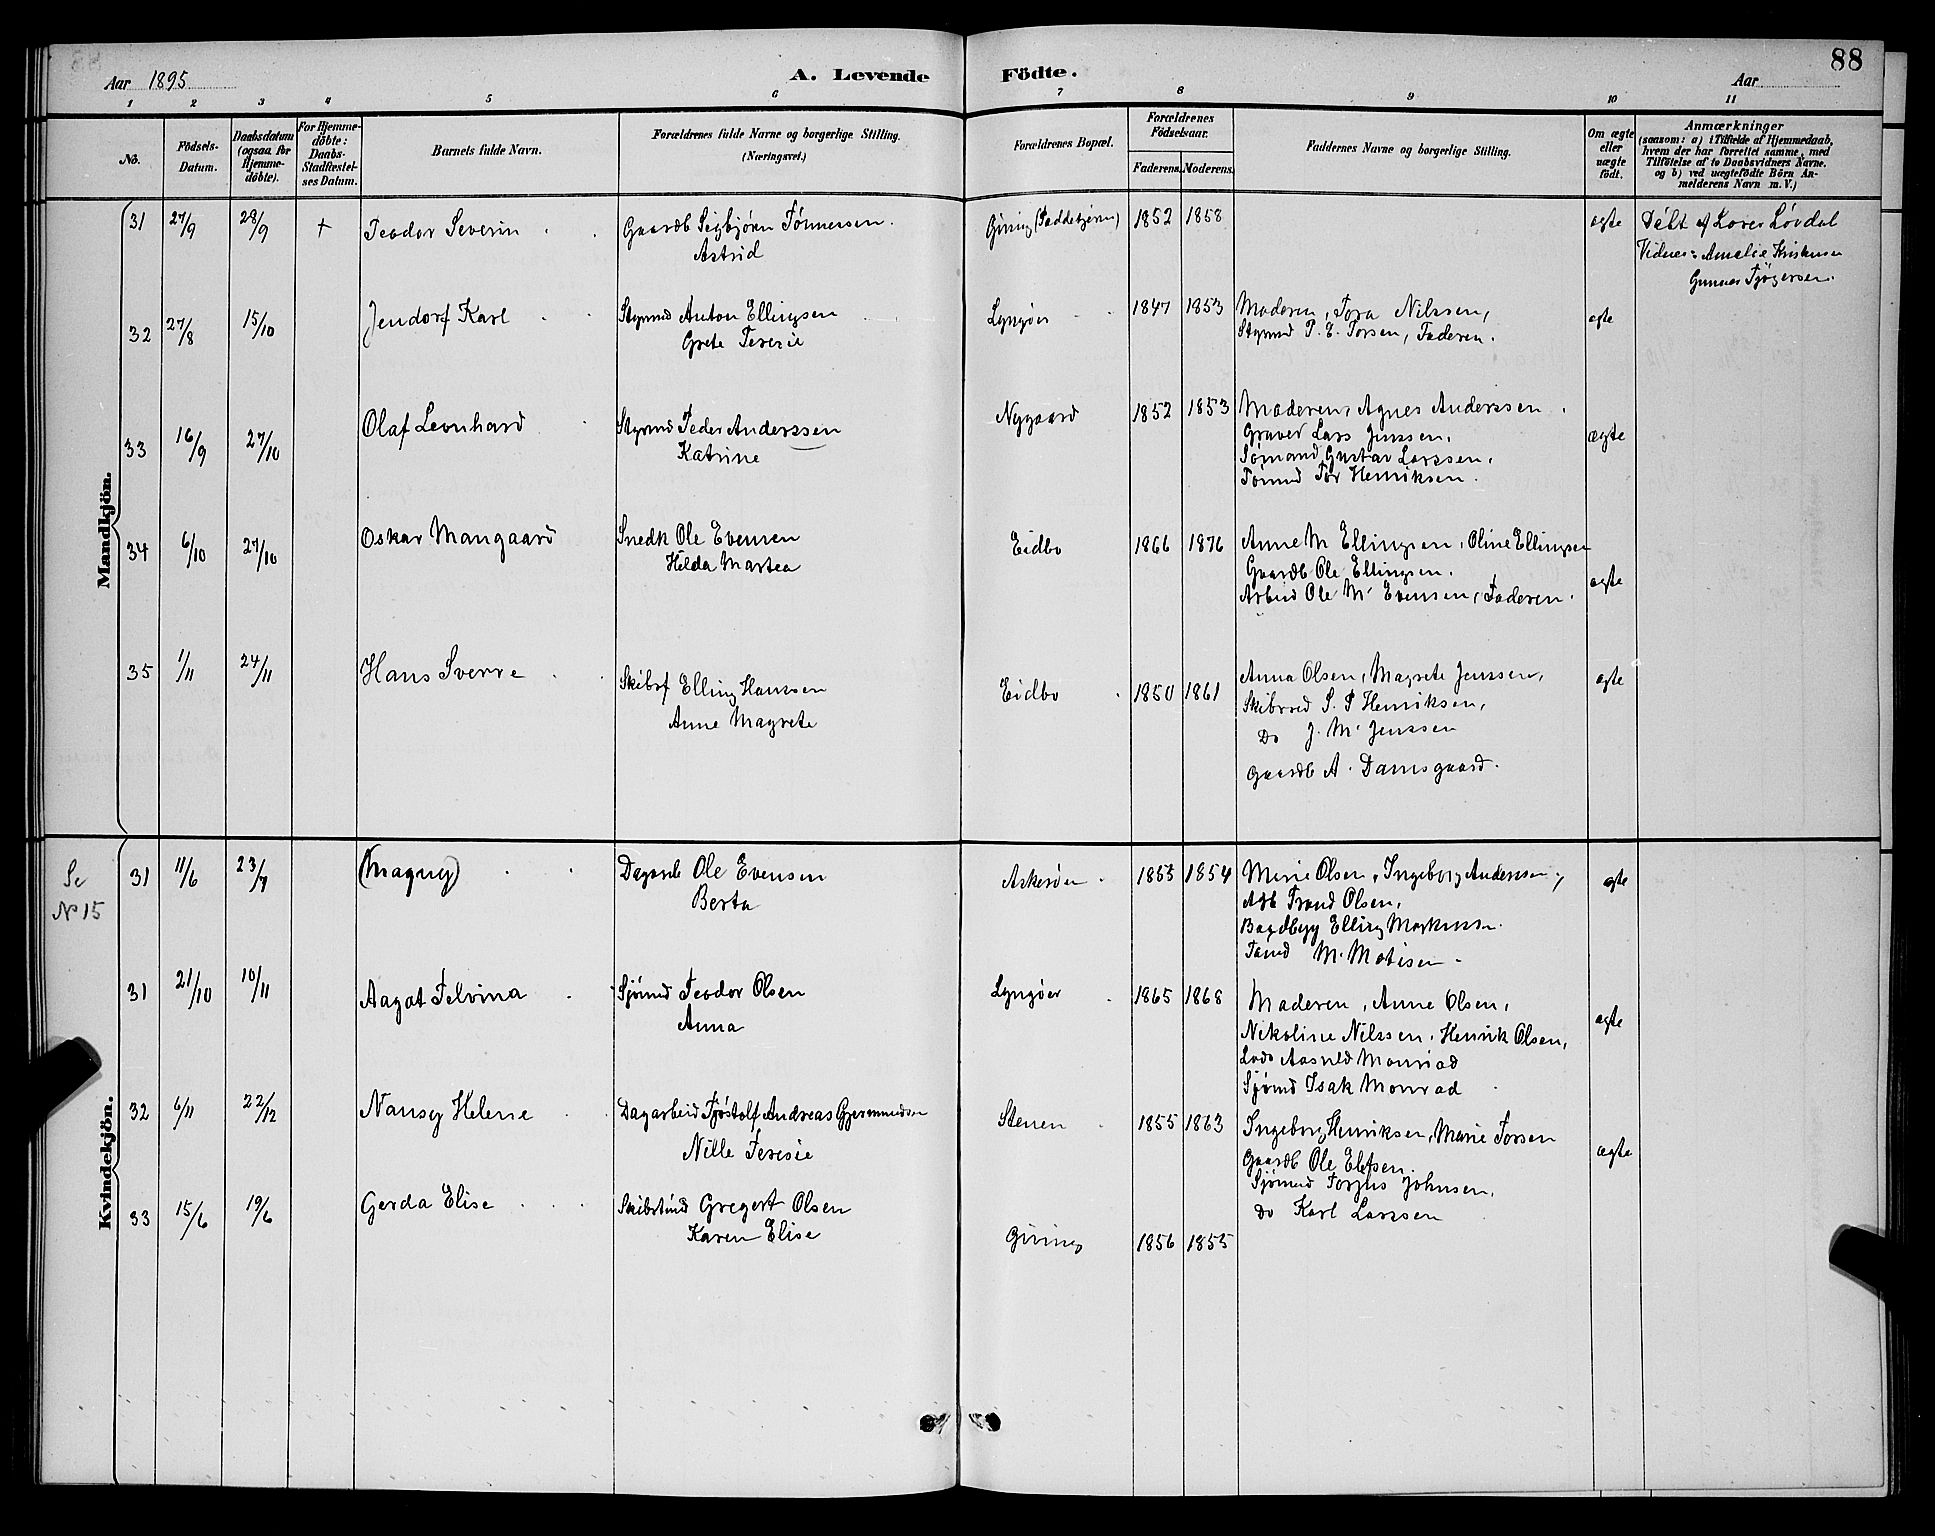 88
Aar 1895
A. Levende Födte.
Aar
1 2 3 4 5 6 7 8 9 10 11
No.
Födsels-Datum.
Daabsdatum (ogsaa for Hjemme-döbte).
For Hjemme-döbte: Daabs-Stadfestel-ses Datum.
Barnets fulde Navn.
Forældrenes fulde Navne og borgerlige Stilling.
(Næringsvei.)
Forældrenes Bopæl.
Forældrenes Födselsaar.
Faderens. Moderens.
Faddernes Navne og borgerlige Stilling.
Om ægte eller uægte födt.
Anmærkninger
(saasom: a) i Tilfælde af Hjemmedaab,
hvem der har forrettet samme, med
Tilföielse af to Daabsvidners Navne.
og b) ved uægtefödte Börn An-
melderens Navn m. V.)
Mandkjön.
31 27/9 28/9 + Teodor Severin Gaardb Sigbjørn Tønnesen Giving 1852 1858 ægte Døbt af Lovis Løvdal
Astrid
Vidner: Amelie Kristensen
Gunnar
32 27/8 15/10 Jendorf Karl Styrmd Anton Ellingsen Lyngøer 1847 1853 Moderen, Tora Nilssen, ægte
Grete Teresie Styrmd P. E. Torsen, Faderen.
33 16/9 27/10 Olaf Leonhard Styrmd Peder Anderssen Nygaard 1852 1853 Moderen, Agnes Anderssen ægte
Katrine Graver Lars Jenssen,
Sømand Gustav Larssen,
Tor Henriksen.
34 6/10 27/10 Oskar Mangaard Snedk Ole Evensen Eidbo 1866 1876 Anne M Ellingsen, Oline Ellingsen ægte
Hilda Martea Gaardb Ole Ellingsen.
Arbeid Ole M. Evensen, Faderen.
35 1/11 24/11 Hans Sverre Skibsf Elling Hanssen Eidbo 1850 1861 Anna Olsen, Magrete Jenssen, ægte
Anne Magrete S. P Henriksen,
Do J. M. Jenssen
Gaardb A. Damsgaard.
Kvindekjön.
Se
No 15
31 11/6 23/7 (Magny) Ole Evensen Askerøen 1853 1854 Marie Olsen, Ingeborg Andersen, ægte
Berta Olsen,
Elling Markussen
M. Matisen
31 21/10 10/11 Aagot Telvina Sjømd Teodor Olsen Lyngøer 1865 1868 Moderen, Anne Olsen, ægte
Anna Nikoline Nilssen, Henrik Olsen,
Lods Monrad
Sjømd Isak Monrad
32 6/11 22/12 Nansy Helene Dagarbeid Tjøstolf Andreas Gjerumndsen Stenen 1855 1863 Ingeborg Henriksen, Marie Torsen ægte
Nille Teresie Gaardb Ole Elefsen.
Sjømd Torjus Johnsen,
Do Karl Larssen
33 15/6 19/6 Gerda Elise Gregert Olsen
Karen Elise Giving 1856 1855